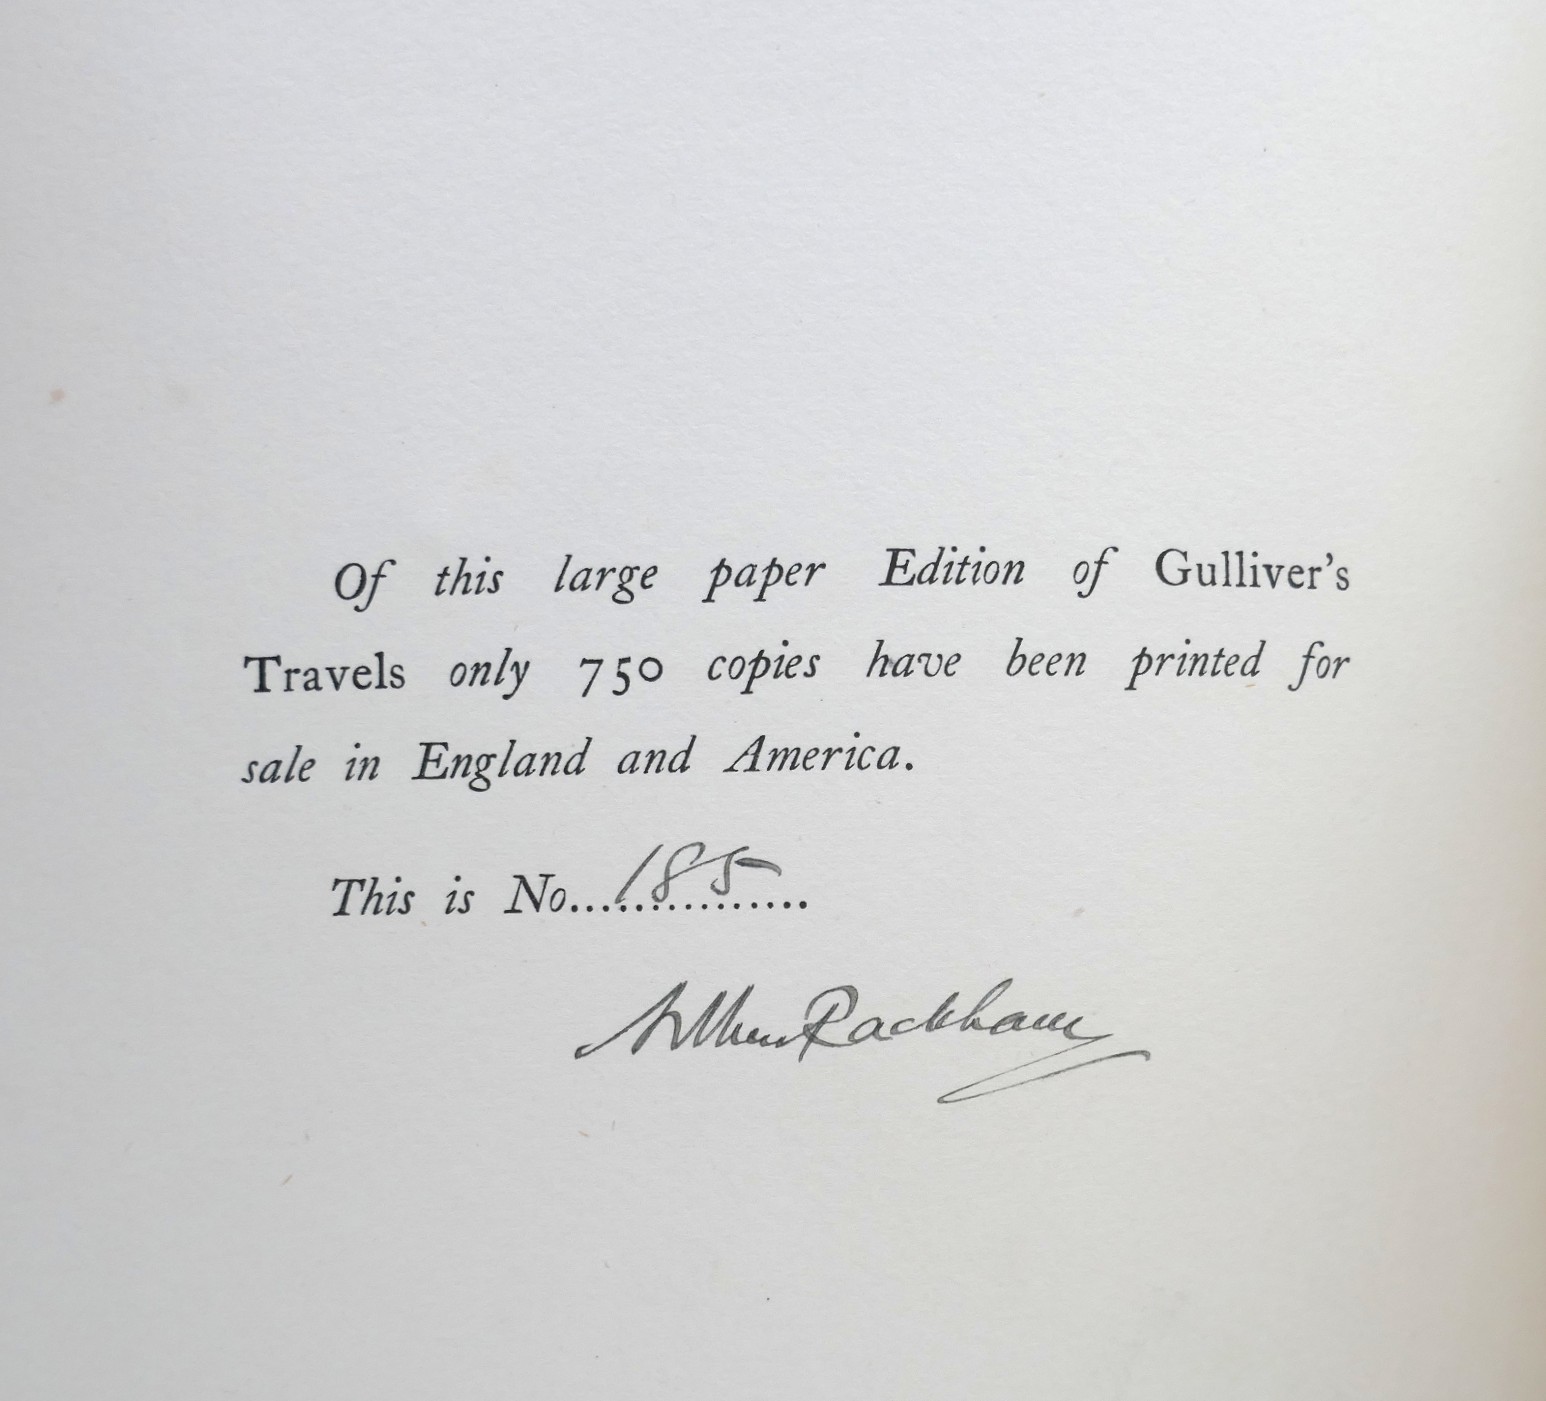 Of this large paper Edition of Gulliver's
Travels only 750 copies have been printed for
sale in England and America.
This is No...............
185
Arthur Rackham